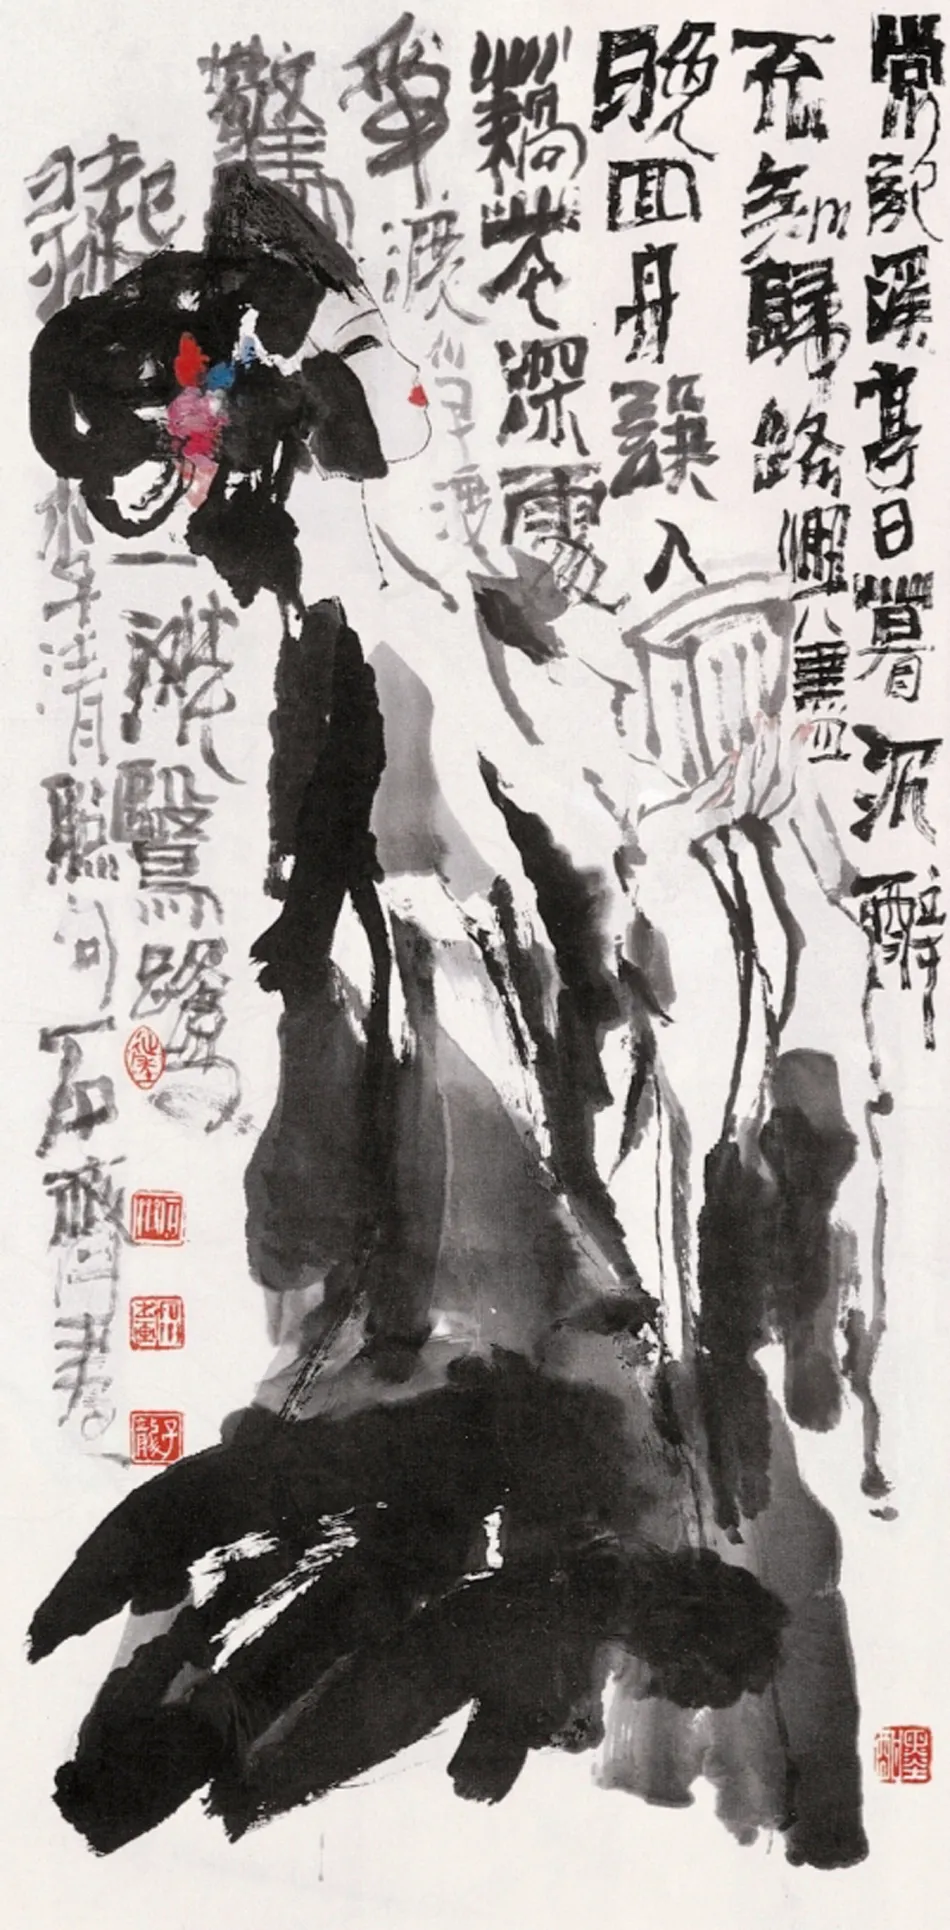 常記溪亭日暮沉醉
不知歸路興盡
晚回舟誤入
藕花深處
爭渡爭渡
驚
起
一灘鷗鷺
清照句石齊